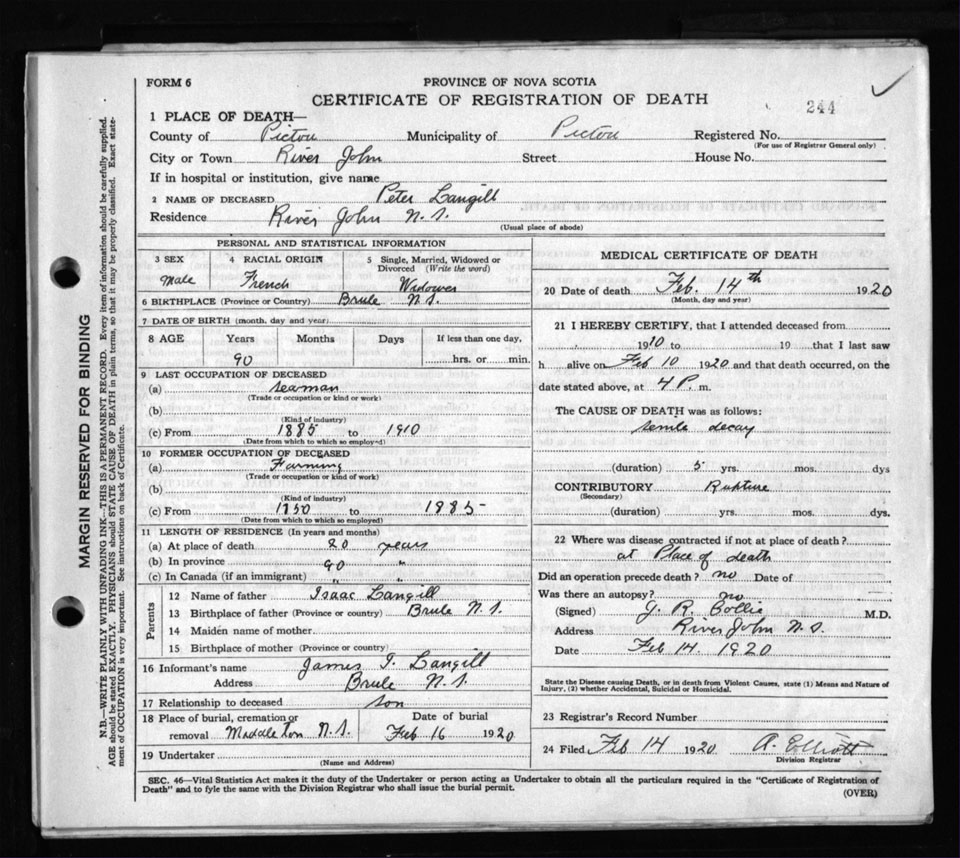 FORM 6
PROVINCE OF NOVA SCOTIA
CERTIFICATE OF REGISTRATION OF DEATH
244
1 PLACE OF DEATH—
County of Pictou Municipality of Pictou Registered No.
(For use of Registrar General only)
City or Town River John Street House No.
If in hospital or institution, give name
2 NAME OF DECEASED Peter Langill
Residence River John N.S.
(Usual place of abode)
PERSONAL AND STATISTICAL INFORMATION
3 SEX 4 RACIAL ORIGIN 5 Single, Married, Widowed or Divorced (Write the word)
Male French Widower
6 BIRTHPLACE (Province or Country) Brule N.S.
7 DATE OF BIRTH (month, day and year)
8 AGE Years Months Days If less than one day,
90 hrs. or min.
9 LAST OCCUPATION OF DECEASED
(a) seaman
(Trade or occupation or kind of work)
(b)
(Kind of industry)
(c) From 1885 to 1910
(Date from which to which so employed)
10 FORMER OCCUPATION OF DECEASED
(a) Farming
(Trade or occupation or kind of work)
(b)
(Kind of industry)
(c) From 1850 to 1885
(Date from which to which so employed)
11 LENGTH OF RESIDENCE (In years and months)
(a) At place of death 20 years
(b) In province 90 "
(c) In Canada (if an immigrant) " "
Parents
12 Name of father Isaac Langill
13 Birthplace of father (Province or country) Brule N.S.
14 Maiden name of mother
15 Birthplace of mother (Province or country)
16 Informant's name James I. Langill
Address Brule N.S.
17 Relationship to deceased son
18 Place of burial, cremation or Date of burial
removal Middleton N.S. Feb 16 1920
19 Undertaker
(Name and Address)
MEDICAL CERTIFICATE OF DEATH
20 Date of death Feb. 14th 1920
(Month, day and year)
21 I HEREBY CERTIFY, that I attended deceased from
1910 to 19 that I last saw
h alive on Feb 10 1920 and that death occurred, on the
date stated above, at 4 P. m.
The CAUSE OF DEATH was as follows:
senile decay
(duration) 5 yrs. mos. dys
CONTRIBUTORY Rupture
(Secondary)
(duration) yrs. mos. dys.
22 Where was disease contracted if not at place of death?
at Place of death
Did an operation precede death? no Date of
Was there an autopsy? no
(Signed) J. R. Collie M.D.
Address River John N.S.
Date Feb 14. 1920
State the Disease causing Death, or in death from Violent Causes, state (1) Means and Nature of
Injury, (2) whether Accidental, Suicidal or Homicidal.
23 Registrar's Record Number
24 Filed Feb 14 1920 A. Elliott
Division Registrar
SEC. 46—Vital Statistics Act makes it the duty of the Undertaker or person acting as Undertaker to obtain all the particulars required in the "Certificate of Registration of
Death" and to fyle the same with the Division Registrar who shall issue the burial permit.
(OVER)
MARGIN RESERVED FOR BINDING
N.B.—WRITE PLAINLY WITH UNFADING INK—THIS IS A PERMANENT RECORD. Every item of information should be carefully supplied.
AGE should be stated EXACTLY. PHYSICIANS should STATE CAUSE OF DEATH in plain terms, so that it may be properly classified. Exact state-
ment of OCCUPATION is very important. See instructions on back of Certificate.